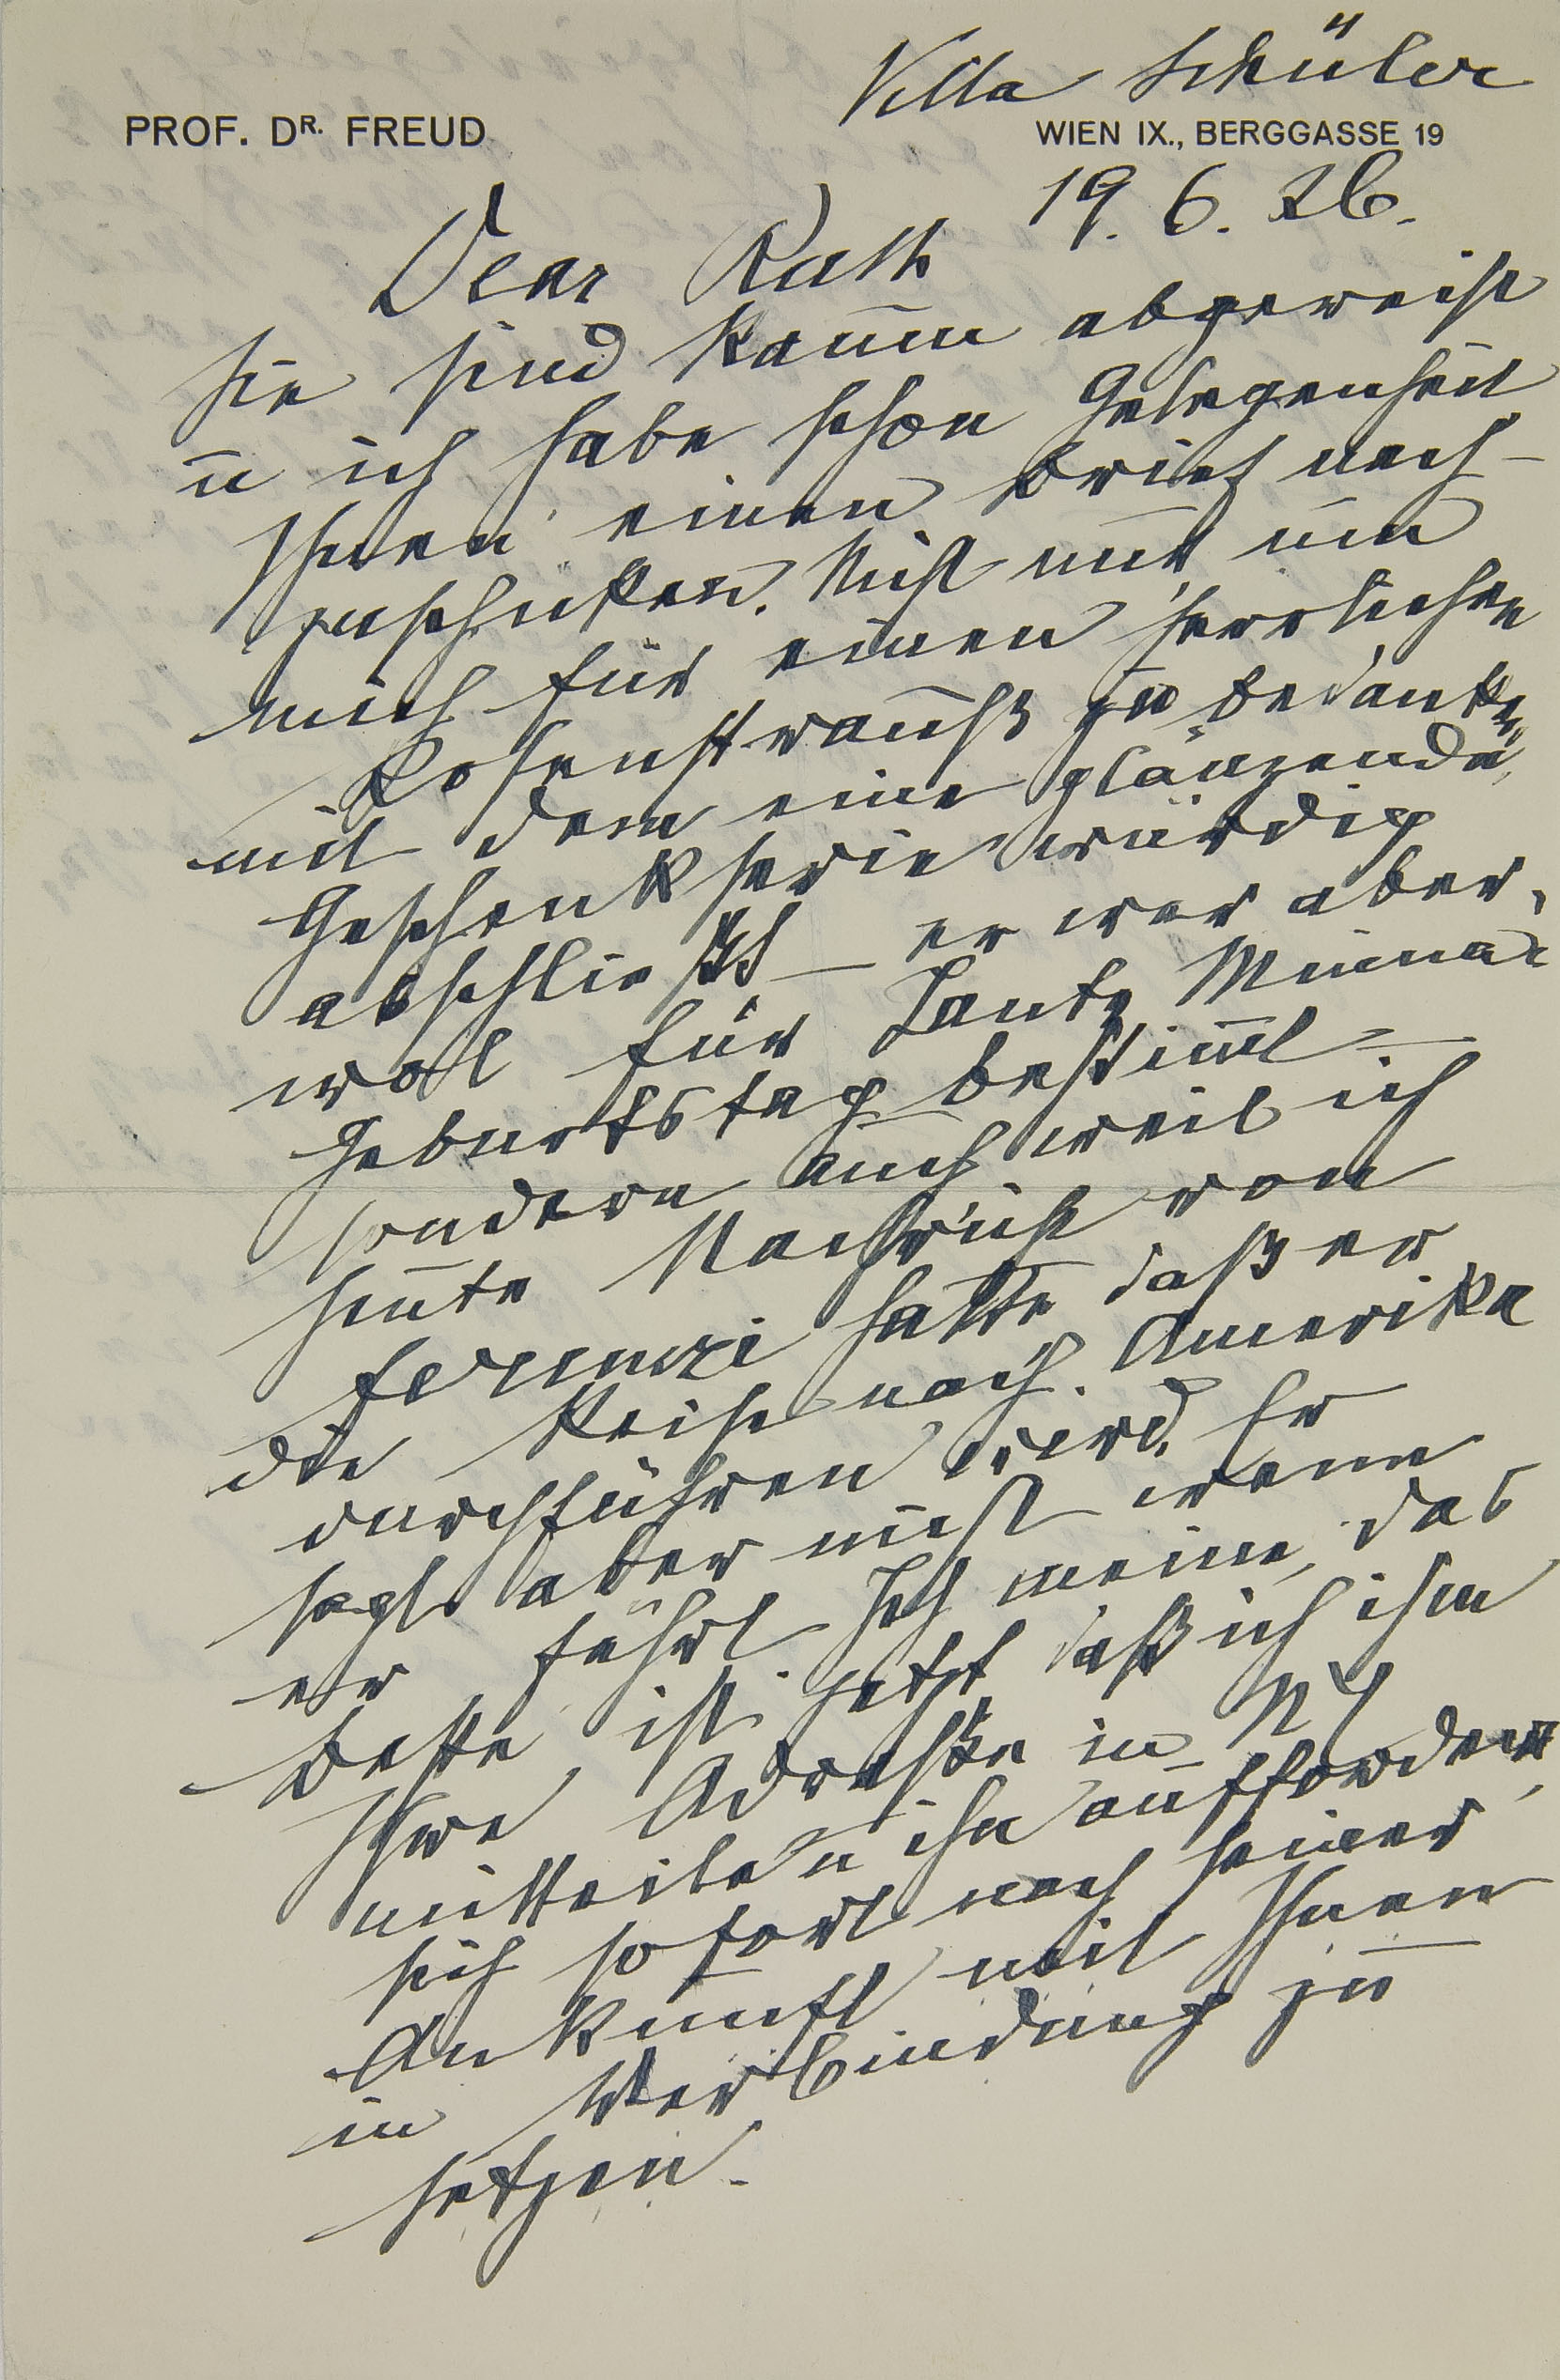 Villa Schüler
PROF. DR. FREUD
WIEN IX., BERGGASSE 19
19. 6. 26.
Dear Ruth
Sie sind kaum abgereist
u ich habe schon Gelegenheit
Ihnen einen Brief nach-
zuschicken. Nicht nur um
mich für einen herrlichen
Rosenstrauß zu bedanken,
mit dem eine glänzende
Geschenkserie würdig
abschließt – er war aber
wol für Tante Minna's
Geburtstag bestimmt –
sondern auch weil ich
heute Nachricht von
Ferenczi hatte daß er
die Reise nach Amerika
durchführen wird. Er
sagt aber nicht wann
er fährt. Ich meine, das
beste ist jetzt daß ich ihm
Ihre Adresse in NY
mitteile u ihn auffordere,
sich sofort nach seiner
Ankunft mit Ihnen
in Verbindung zu
setzen.